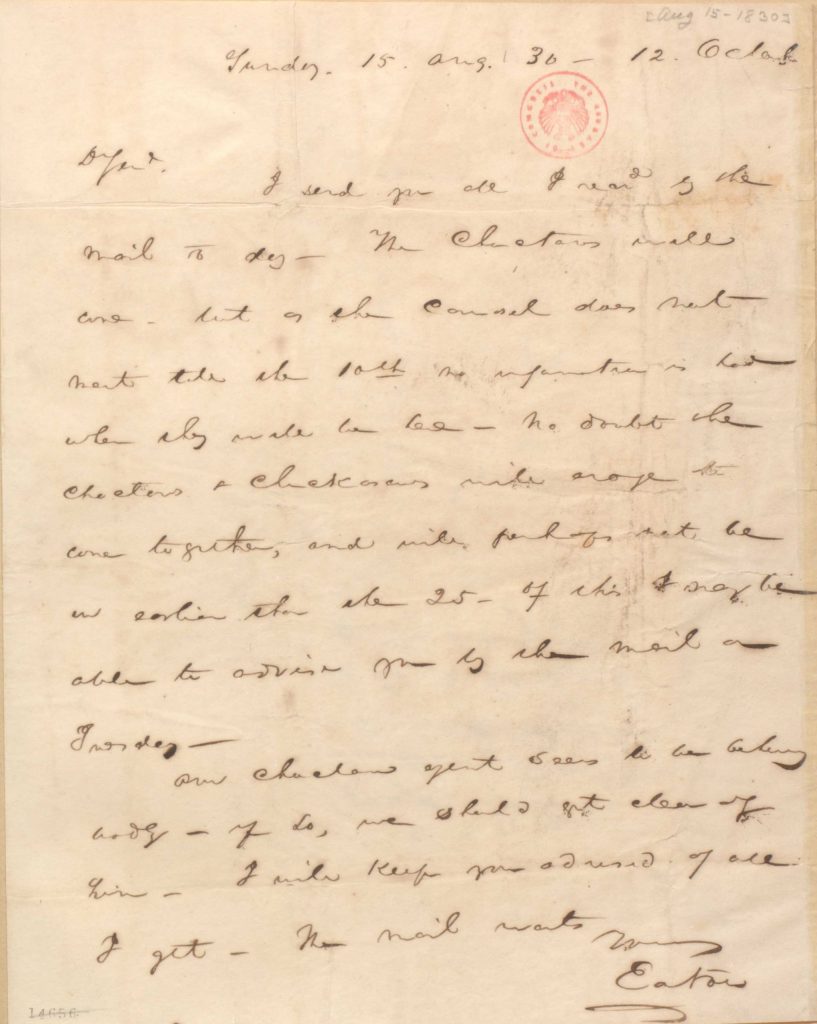 [Aug 15-1830]
Sunday. 15. Aug. 30 - 12. Oclock
THE LIBRARY OF CONGRESS
Dr Genl.
I send you all I recd by the
mail to day - The Choctaws will
come - but as the Counsel does not
meet till the 10th no information is had
when they will be here - No doubt the
Choctaws & Chickasaws will arrange to
come together, and will perhaps not be
in earlier than the 25 - of this I may be
able to advise you by the mail on
Tuesday -
our Choctaw agent seems to be behaving
badly - if so, we should get clear of
him - I will keep you advised of all
I get - The mail waits
Yours
Eaton
14656